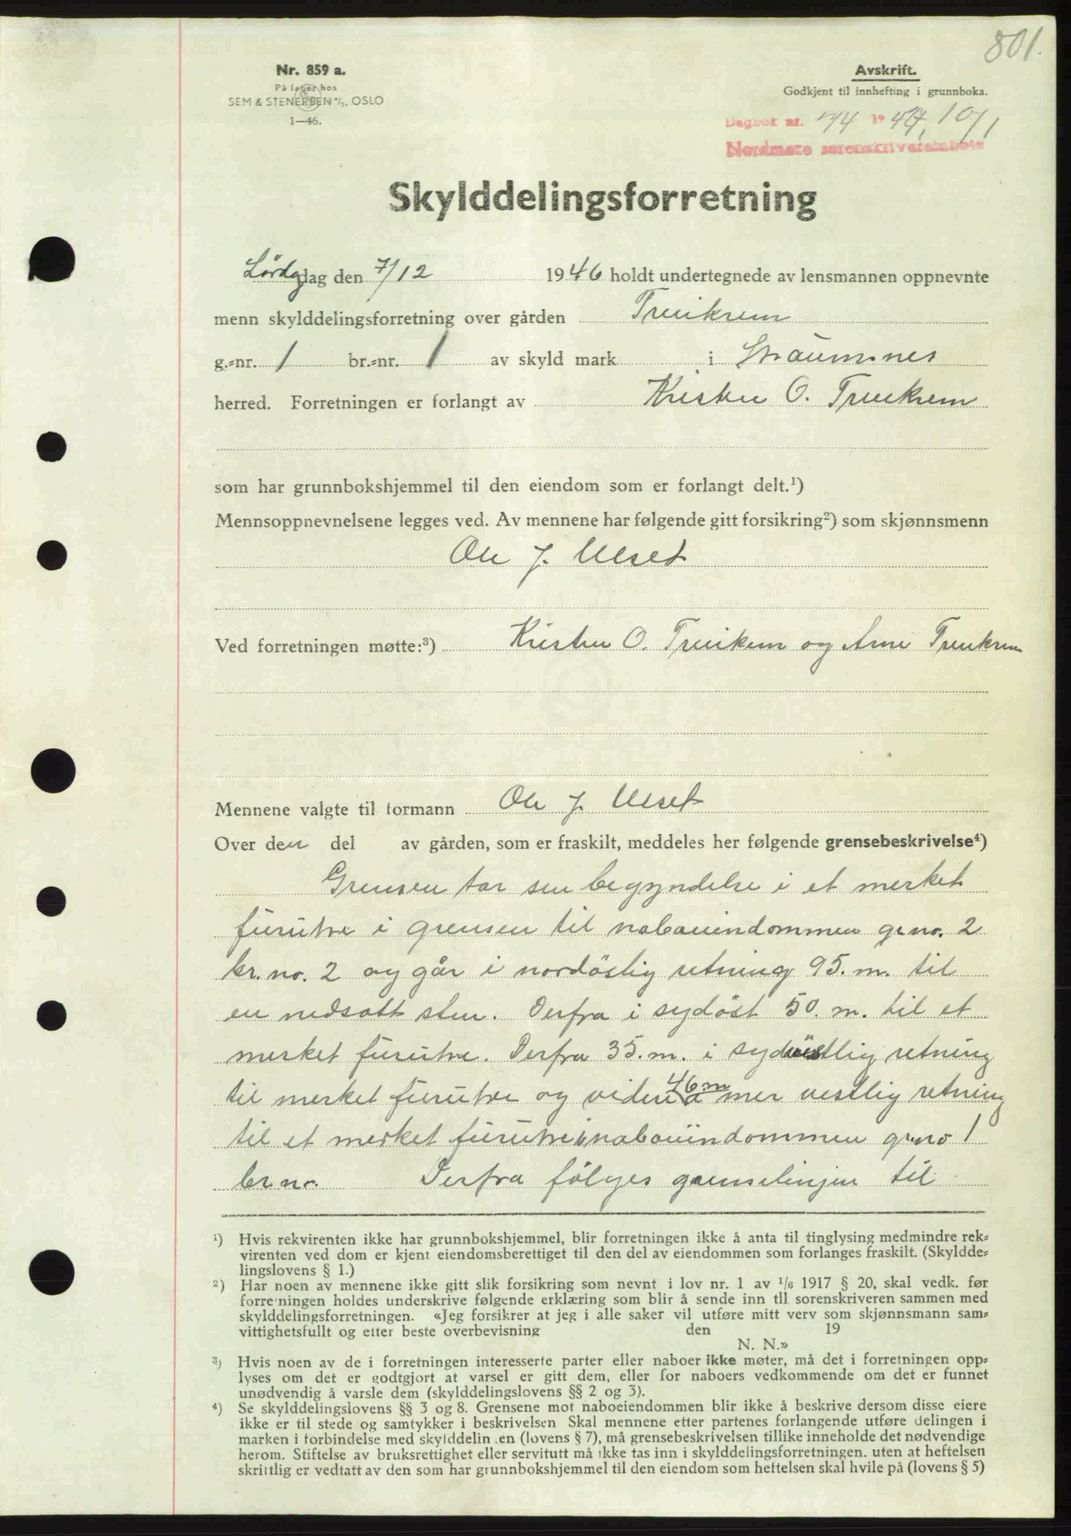 801.
Nr. 859 a.
På lager hos
SEM & STENERSEN A/S, OSLO
1—46.
Avskrift.
Godkjent til innhefting i grunnboka.
Dagbok nr. 44 19 47, 10/1
Nordmøre sorenskriverembete
Skylddelingsforretning
Lørdag den 7/12 1946 holdt undertegnede av lensmannen oppnevnte
menn skylddelingsforretning over gården Treekrem
g.-nr. 1 br.-nr. 1 av skyld mark i Straumsnes
herred. Forretningen er forlangt av Kristen O. Treekrem
som har grunnbokshjemmel til den eiendom som er forlangt delt.¹)
Mennsoppnevnelsene legges ved. Av mennene har følgende gitt forsikring²) som skjønnsmenn
Ole J. Ulset
Ved forretningen møtte:³) Kristen O. Treekrem og Arne Treekrem
Mennene valgte til formann Ole J. Ulset
Over den del av gården, som er fraskilt, meddeles her følgende grensebeskrivelse⁴)
Grensen tar sin begyndelse i et merket
furutre i grensen til naboeiendommen gr.no. 2
br.no. 2 og går i nordöslig retning 95. m. til
en nedsatt sten. Derfra i sydöst 50. m. til et
merket furutre. Derfra 35. m. i sydvestlig retning
til merket furutre og videre 46 m mer vestlig retning
til et merket furutre i naboeiendommen gr.no 1
br.nr. Derfra fölges grenselinjen til
¹) Hvis rekvirenten ikke har grunnbokshjemmel, blir forretningen ikke å anta til tinglysing medmindre rek-
virenten ved dom er kjent eiendomsberettiget til den del av eiendommen som forlanges fraskilt. (Skyldde-
lingslovens § 1.)
²) Har noen av mennene ikke gitt slik forsikring som nevnt i lov nr. 1 av 1/6 1917 § 20, skal vedk. før
forretningen holdes underskrive følgende erklæring som blir å sende inn til sorenskriveren sammen med
skylddelingsforretningen. «Jeg forsikrer at jeg i alle saker vil utføre mitt verv som skjønnsmann sam-
vittighetsfullt og etter beste overbevisning den 19
N. N.»
³) Hvis noen av de i forretningen interesserte parter eller naboer ikke møter, må det i forretningen opp-
lyses om det er godtgjort at varsel er gitt dem, eller for naboers vedkommende om det er funnet
unødvendig å varsle dem (skylddelingslovens §§ 2 og 3).
⁴) Se skylddelingslovens §§ 3 og 8. Grensene mot naboeiendommen blir ikke å beskrive dersom disse eiere
ikke er til stede og samtykker i beskrivelsen Skal mennene etter partenes forlangende utføre delingen i
marken i forbindelse med skylddelingen (lovens § 7), må grensebeskrivelsen tillike inneholde det nødvendige
herom. Stiftelse av bruksrettighet eller servitutt må ikke tas inn i skylddelingsforretningen. uten at heftelsen
skriftlig er vedtatt av den som har grunnbokshjemmel til den eiendom som heftelsen skal hvile på (lovens § 5)